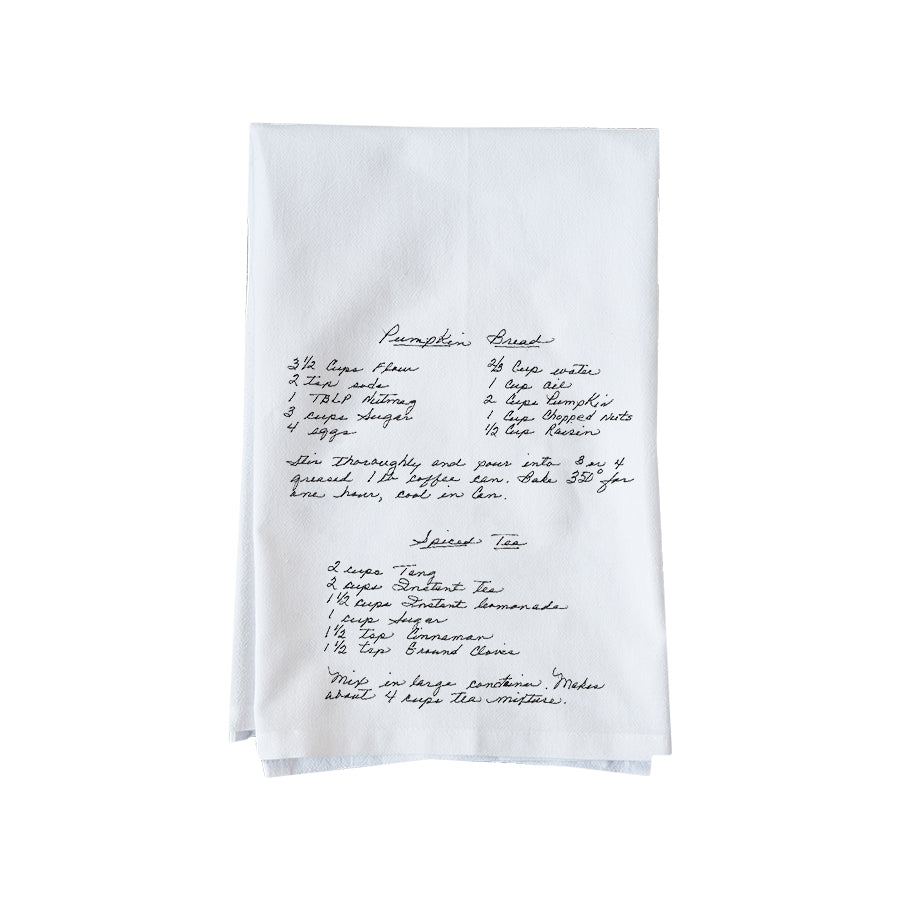 Pumpkin Bread
3 1/2 Cups Flour
2 tsp soda
1 TBLP Nutmeg
3 cups Sugar
4 eggs
2/3 Cup water
1 Cup oil
2 Cups Pumpkin
1 Cup Chopped Nuts
1/2 Cup Raisin
Stir thoroughly and pour into 3 or 4
greased 1 lb coffee can. Bake 350° for
one hour, cool in Can.
Spiced Tea
2 cups Tang
2 cups Instant tea
1 1/2 cups Instant lemonade
1 cup Sugar
1 1/2 tsp Cinnamon
1 1/2 tsp Ground Cloves
Mix in large container. Makes
about 4 cups tea mixture.